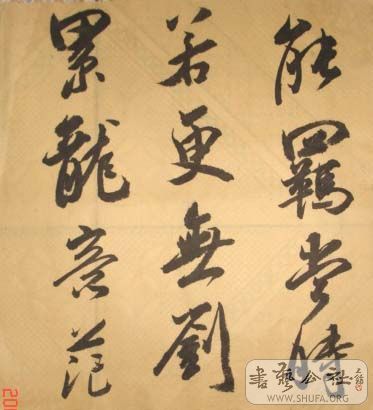 能羈當時
若更無劉
累龍意茫
書藝公社
WWW.SHUFA.ORG
20